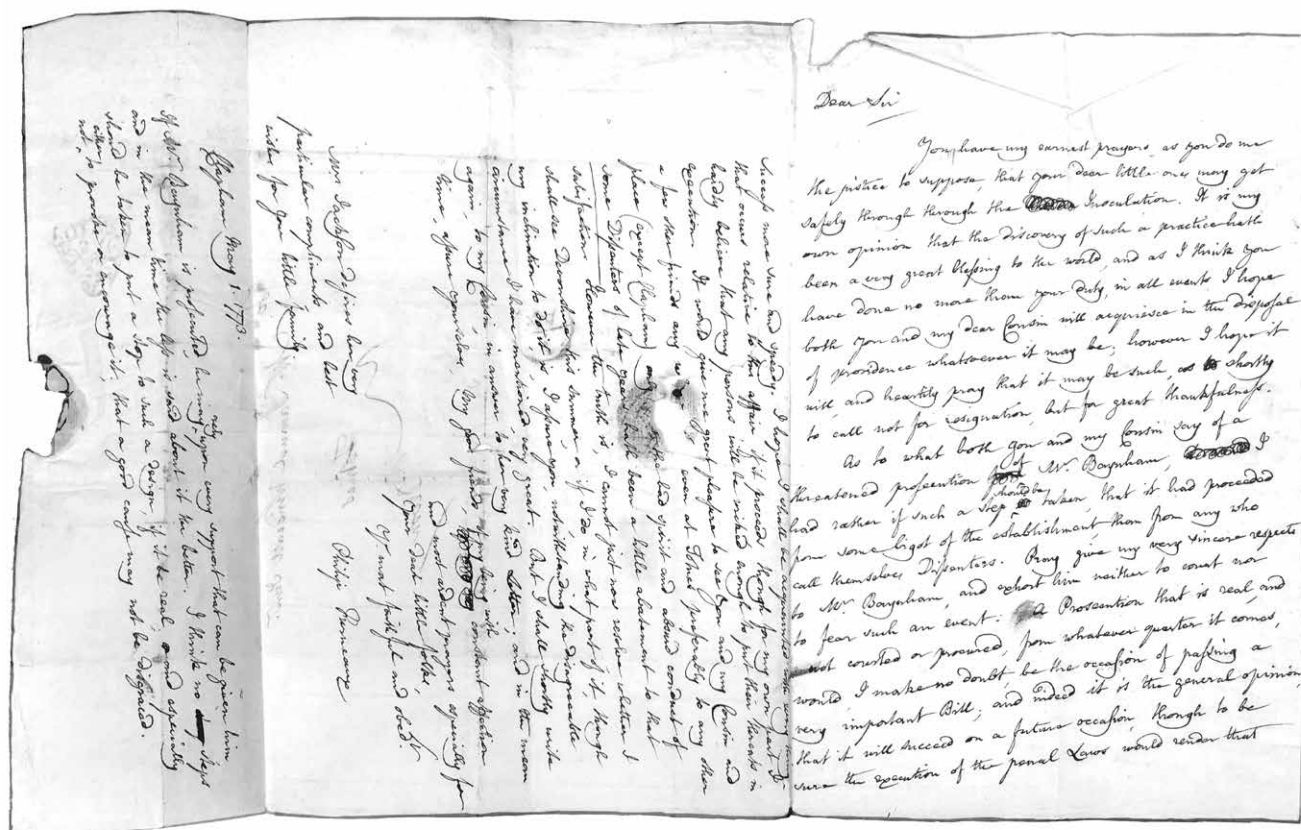 Dear Sir
You have my earnest prayers, as you do me
the justice to suppose, that your dear little ones may get
safely through through the Inoculation. It is my
own opinion that the discovery of such a practice hath
been a very great blessing to the world, and as I think you
have done no more than your duty, in all events I hope
both you and my dear Cousin will acquiesce in the disposal
of providence whatsoever it may be; however I hope it
will and heartily pray that it may be such, as shortly
to call not for resignation, but for great thankfulness.
As to what both you and my Cousin say of a
threatened prosecution of Mr. Baynham, I
had rather if such a step should be taken, that it had proceeded
from some bigot of the establishment, than from any who
call themselves Dissenters. Pray give my very sincere respects
to Mr Baynham, and exhort him neither to court nor
to fear such an event. Prosecution that is real, and
not courted or procured, from whatever quarter it comes,
would, I make no doubt, be the occasion of passing a
very important Bill; and indeed it is the general opinion,
that it will succeed on a future occasion, though to be
sure the execution of the penal Laws would render that
success more sure and speedy. I hope I shall be acquainted with
that occurs relative to this affair if it proceeds though for my own part I
hardly believe that any persons will be wicked enough to put their threats in
execution. It would give me great pleasure to see you and my Cousin and
a few other friends any even at Totnes preferably to any other
place (except Clapham) only the bad spirit and absurd conduct of
some Dissenters of late years hath been a little abatement to that
satisfaction. However the truth is, I cannot just now resolve whether I
shall see Devonshire this summer, or if I do in what part of it, though
my inclination to do it is, I assure you notwithstanding the disagreeable
circumstance I have mentioned, very great. But I shall shortly write
again, to my Cousin in answer to her very kind Letter; and in the mean
time, assure yourselves, my good friends of my being with constant affection
and most ardent prayers especially for
your dear little folks,
Yr. most faithful and obed.
Philip Furneaux
Mrs Dashford desires her very
particular compliments, and best
wishes for your little family.
Clapham May 1. 1773.
If Mr. Baynham is prosecuted, he may rely upon every support that can be given him
and in the mean time the less is said about it the better. I think no steps
should be taken to put a stop to such a design, if it be real, and especially
not, either to provoke or encourage it, that a good cause may not be disgraced.